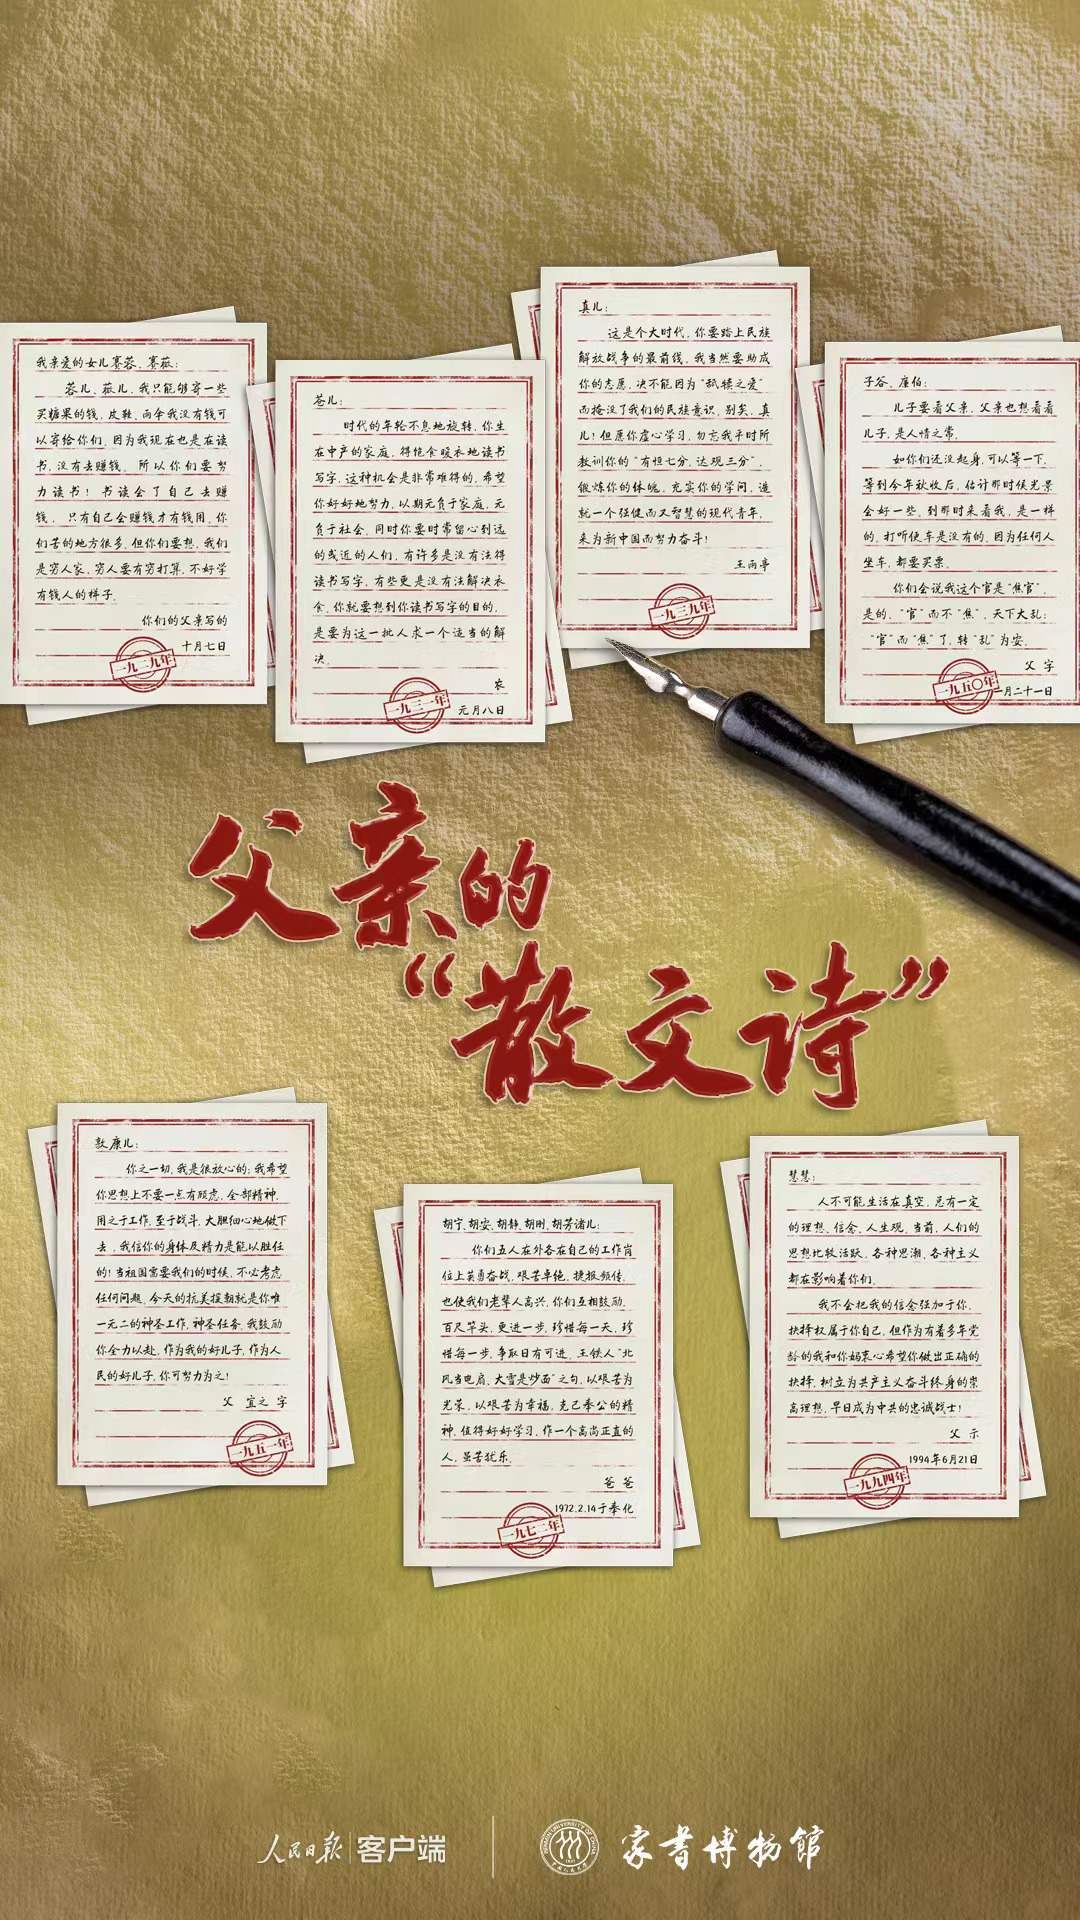 我亲爱的女儿赛蓉、赛菰：
蓉儿、菰儿，我只能够寄一些
买糖果的钱，皮鞋、雨伞我没有钱可
以寄给你们，因为我现在也是在读
书，没有去赚钱， 所以你们要努
力读书！书读会了自己去赚
钱， 只有自己会赚钱才有钱用，你
们苦的地方很多，但你们要想，我们
是穷人家，穷人要有穷打算，不好学
有钱人的样子。
你们的父亲写的
十月七日
一九二九年
苍儿：
时代的年轮不息地旋转，你生
在中产的家庭，得饱食暖衣地读书
写字，这种机会是非常难得的，希望
你好好地努力，以期无负于家庭，无
负于社会，同时你要时常留心到远
的或近的人们，有许多是没有法得
读书写字，有些更是没有法解决衣
食，你就要想到你读书写字的目的，
是要为这一批人求一个适当的解
决。
农
元月八日
一九三一年
真儿：
这是个大时代，你要踏上民族
解放战争的最前线，我当然要助成
你的志愿，决不能因为“舐犊之爱”
而掩没了我们的民族意识，别矣，真
儿！但愿你虚心学习，勿忘我平时所
教训你的“有恒七分，达观三分”，
锻炼你的体魄，充实你的学问，造
就一个强健而又智慧的现代青年，
来为新中国而努力奋斗！
王雨亭
一九三九年
子谷、廉伯：
儿子要看父亲，父亲也想看看
儿子，是人情之常。
如你们还没起身，可以等一下，
等到今年秋收后，估计那时候光景
会好一些，到那时来看我，是一样
的，打听便车是没有的，因为任何人
坐车，都要买票。
你们会说我这个官是“焦官”，
是的，“官”而不“焦”，天下大乱；
“官”而“焦”了，转“乱”为安。
父 字
二月二十一日
一九五〇年
父亲的
“散文诗”
敦康儿：
你之一切，我是很放心的；我希望
你思想上不要一点有顾虑，全部精神，
用之于工作，至于战斗，大胆细心地做下
去，我信你的身体及精力是能以胜任
的！当祖国需要我们的时候，不必考虑
任何问题，今天的抗美援朝就是你唯
一无二的神圣工作，神圣任务，我鼓励
你全力以赴，作为我的好儿子，作为人
民的好儿子，你可努力为之！
父 宜之 字
一九五一年
胡宁、胡安、胡静、胡刚、胡芳诸儿：
你们五人在外各在自己的工作岗
位上英勇奋战，艰苦卓绝，捷报频传，
也使我们老辈人高兴，你们互相鼓励，
百尺竿头，更进一步，珍惜每一天，珍
惜每一步，争取日有可进，王铁人“北
风当电扇，大雪是炒面”之句，以艰苦为
光荣，以艰苦为幸福，克己奉公的精
神，值得好好学习，作一个高尚正直的
人，虽苦犹乐。
爸爸
1972.2.14于奉化
一九七二年
慧慧：
人不可能生活在真空，总有一定
的理想、信念、人生观，当前，人们的
思想比较活跃，各种思潮、各种主义
都在影响着你们。
我不会把我的信念强加于你，
抉择权属于你自己，但作为有着多年党
龄的我和你妈衷心希望你做出正确的
抉择，树立为共产主义奋斗终身的崇
高理想，早日成为中共的忠诚战士！
父 示
1994年6月21日
一九九四年
人民日报 客户端
家书博物馆